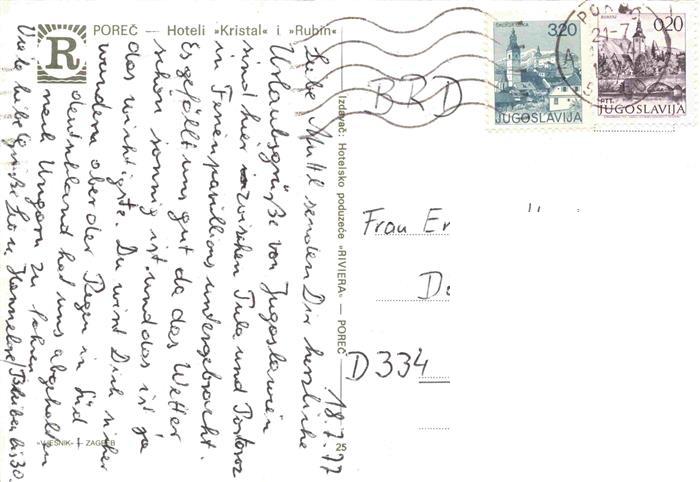 POREČ — Hoteli »Kristal« i »Rubin«
R
18.7.77
Liebe Muttl senden Dir herzliche
Urlaubsgrüße von Jugoslawien
sind hier zwischen Pula und Portoroz
in Ferienpavillions untergebracht.
Es gefällt uns gut da das Wetter
schön sonnig ist und das ist ja
das wichtigste. Du wirst Dich sicher
wundern aber der Regen in Süd
deutschland hat uns abgehalten
nach Ungarn zu fahren
Viele liebe Grüße Hannelore
bis 30.
»VJESNIK« — ZAGREB
25
Izdavač: Hotelsko poduzeće »RIVIERA« — POREČ
BRD
320
JUGOSLAVIJA
0,20
PTT
JUGOSLAVIJA
21-7
Frau Er
D334